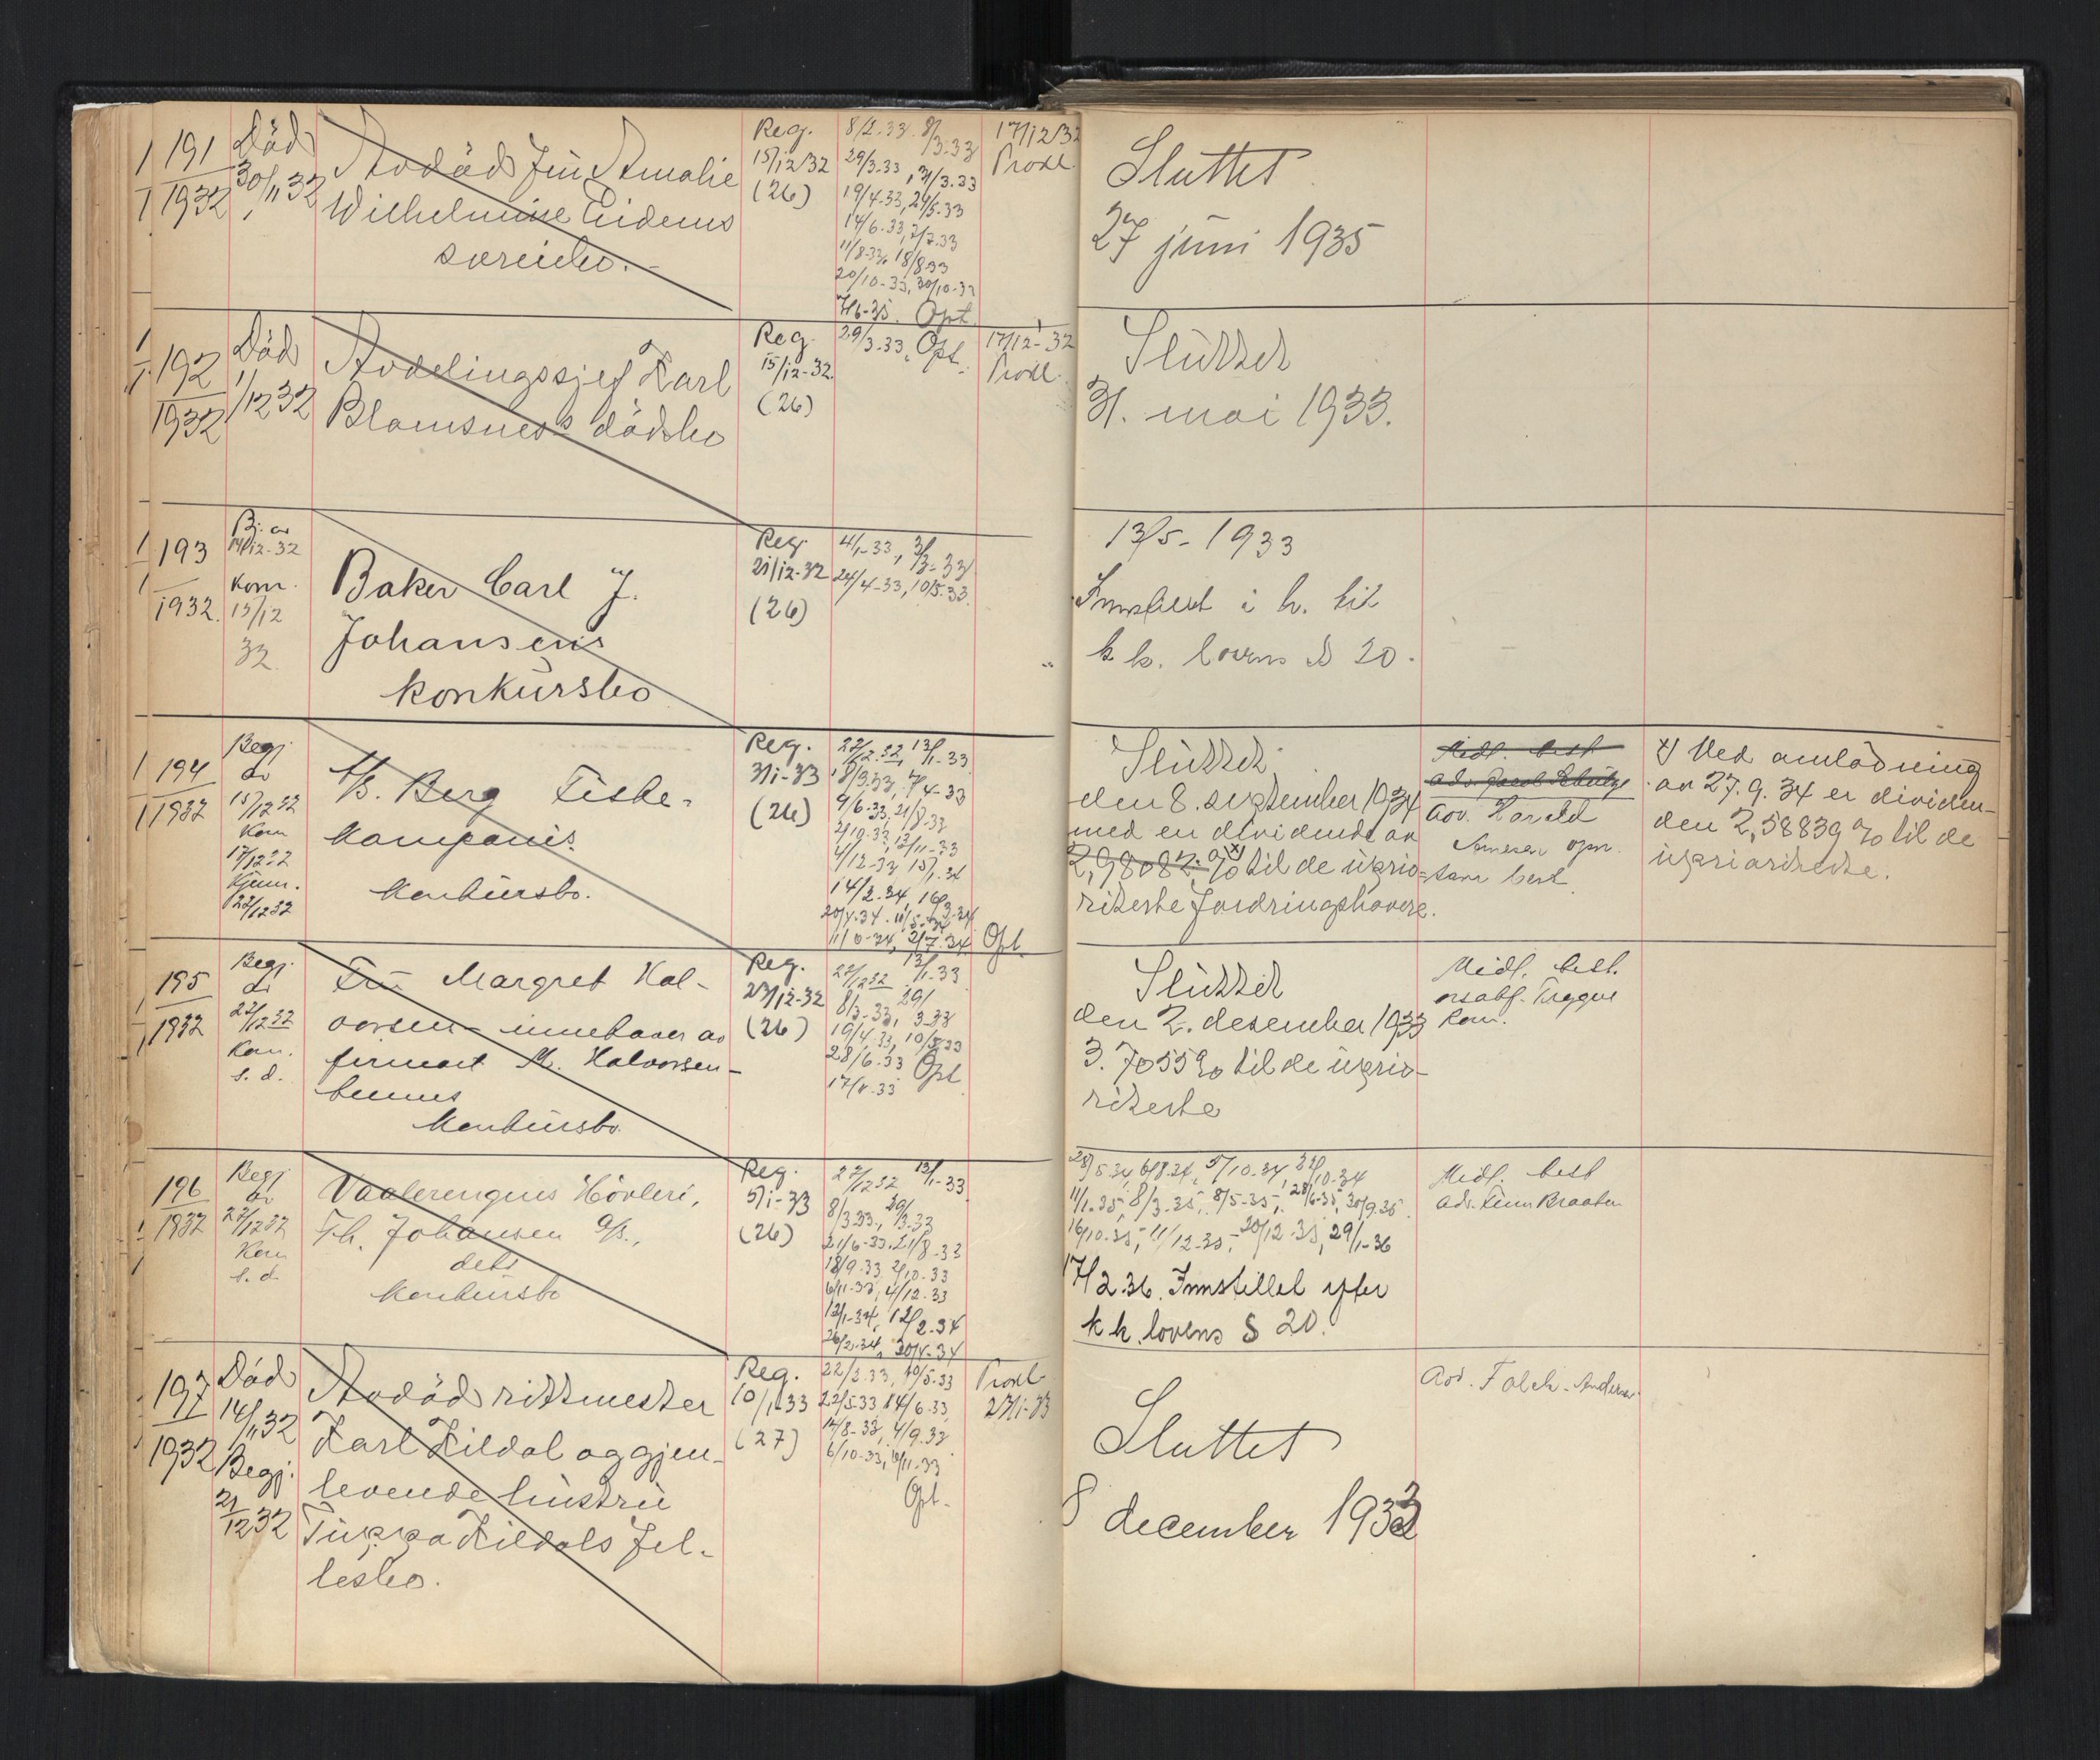 191
1932
Död
30/11 32
Avdöd frü Amalie
Wilhelmine Eidems
Reg.
15/12 32
(26)
8/2-33. 8/3-33
29/3-33, 31/3.33
19/4-33, 24/5-33
14/6-33, 7/7-33
11/8-33, 18/8-33
20/10-33, 30/10-33
Opt.
17/12 32
Prokl.
Sluttet
27 juni 1935
192
1932
Död
1/12 32
Avdelingssjef Karl
Blomsness dödsbo
Reg.
15/12-32.
(26)
29/3-33. Opt.
17/12-32
Prokl.
Slüttet
31. mai 1933.
193
1932.
Bj. av
14/12-32
Kom.
15/12
32
Baker Carl J.
Johansens
konkürsbo
Reg.
21/12-32
(26)
4/1-33, 3/3-33
24/4-33, 10/5-33
13/5-1933
Innstillet i h. til
k k. lovens § 20.
194
1932
Begj.
av
15/12 32
Kom
17/12 32
Kjenn.
22/12 32
A/S. Berg Fiske-
kompanis
konkürsbo.
Reg.
3/1-33
(26)
22/12.32, 13/1-33
8/3.33, 7/4-33
9/6-33, 21/8-33
2/10-33, 13/11-33
4/12-33, 15/1.34
14/2.34, 16/3.34
20/4.34. 11/5-34
11/6-34, 2/7.34 Opt.
Slüttet
den 8. september 1934
med en dividende av
2,98082 % x) til de üprio-
riterte fordringshavere.
Midl. best
adv. Jacob
adv. Harald
opn.
som best.
x) Ved omlödning
av 27. 9. 34 er dividen-
den 2,58839 % til de
üprioriterte.
195
1932
Begj.
av
22/12 32
Kom.
s. d.
Frü Margret Hal-
vorsen innehaver av
firmaet M. Halvorsen
konkürsbo.
Reg.
23/12-32
(26)
22/12 32 13/1-33
8/3-33, 29/3-33
19/4.33, 10/5.33
28/6.33 Opt.
17/11-33
Slüttet
den 2. desember 1933
3.7055 % til de üprio-
riterte
Midl. best.
orsakf. Trygve
Kom.
196
1932
Begj.
av
22/12 32
Kom
s. d.
Vaalerengens Hövleri,
Th. Johansen A/S.,
dets
konkürsbo
Reg.
5/1-33
(26)
22/12 32 13/1-33
8/3 33, 29/3-33
21/6-33, 21/8-33
18/9.33, 2/10-33
6/11-33, 4/12.33
12/1-34, 12/2-34
26/2-34, 30/4-34
28/5 34, 6/8.34, 5/10.34, 22/10-34
11/1-35, 8/3-35, 8/5-35, 28/6-35, 30/9.35
16/10-35, 11/12-35, 20/12-35, 29/1-36
17/2.36. Innstillet efter
k k. lovens § 20.
Midl. best
adv. Finn Braaten
197
1932
Död
14/11 32
Begj.
21/12 32
Avdöd rittmester
Karl Kildal og gjen-
levende hüstrü
Kildals fel-
lesbo.
Reg.
10/1.33
(27)
22/2.33, 10/5.33
22/5.33 14/6.33,
14/8-33, 4/9.33
6/10-33, 6/11-33
Opt.
Prokl.
23/1-33
Sluttet
8 december 1933
Adv. Falch-Anderssen